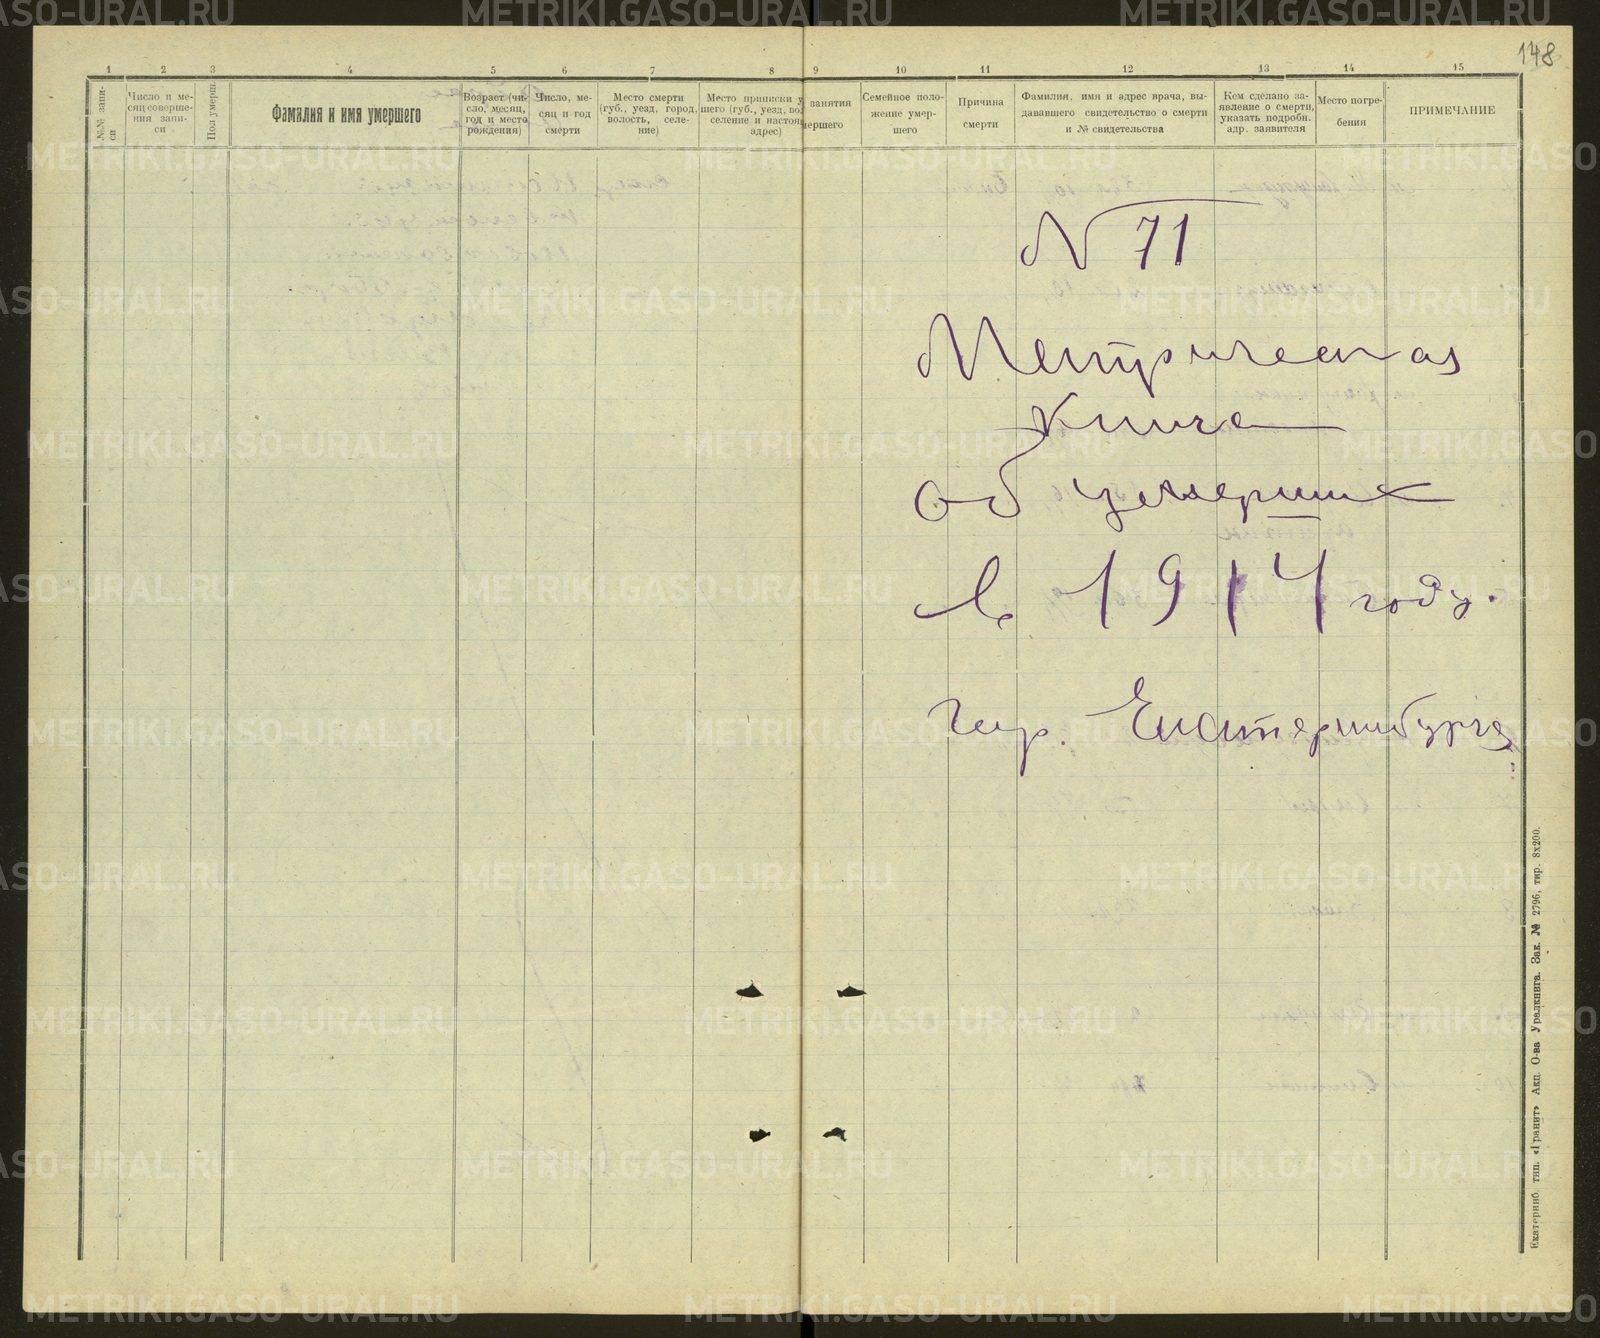 148
1 2 3 4 5 6 7 8 9 10 11 12 13 14 15
№№ запи-
си
Число и ме-
сяц соверше-
ния запи-
си
Пол умерш
Фамилия и имя умершего
Возраст (чи-
сло, месяц,
год и место
рождения)
Число, ме-
сяц и год
смерти
Место смерти
(губ., уезд, город,
волость, селе-
ние)
Место приписки у
шего (губ., уезд, во
селение и настоя
адрес)
занятия
мершего
Семейное поло-
жение умер-
шего
Причина
смерти
Фамилия, имя и адрес врача, вы-
дававшего свидетельство о смерти
и № свидетельства
Кем сделано за-
явление о смерти,
указать подробн.
адр. заявителя
Место погре-
бения
ПРИМЕЧАНИЕ
N 71
Метрическая
Книга
об умерших
в 1914 году.
гор. Екатеринбурга
Екатеринб. тип. «Гранит» Акц. О-ва Уралкнига. Зак. № 2796, тир. 8х200.
METRIKI.GASO-URAL.RU